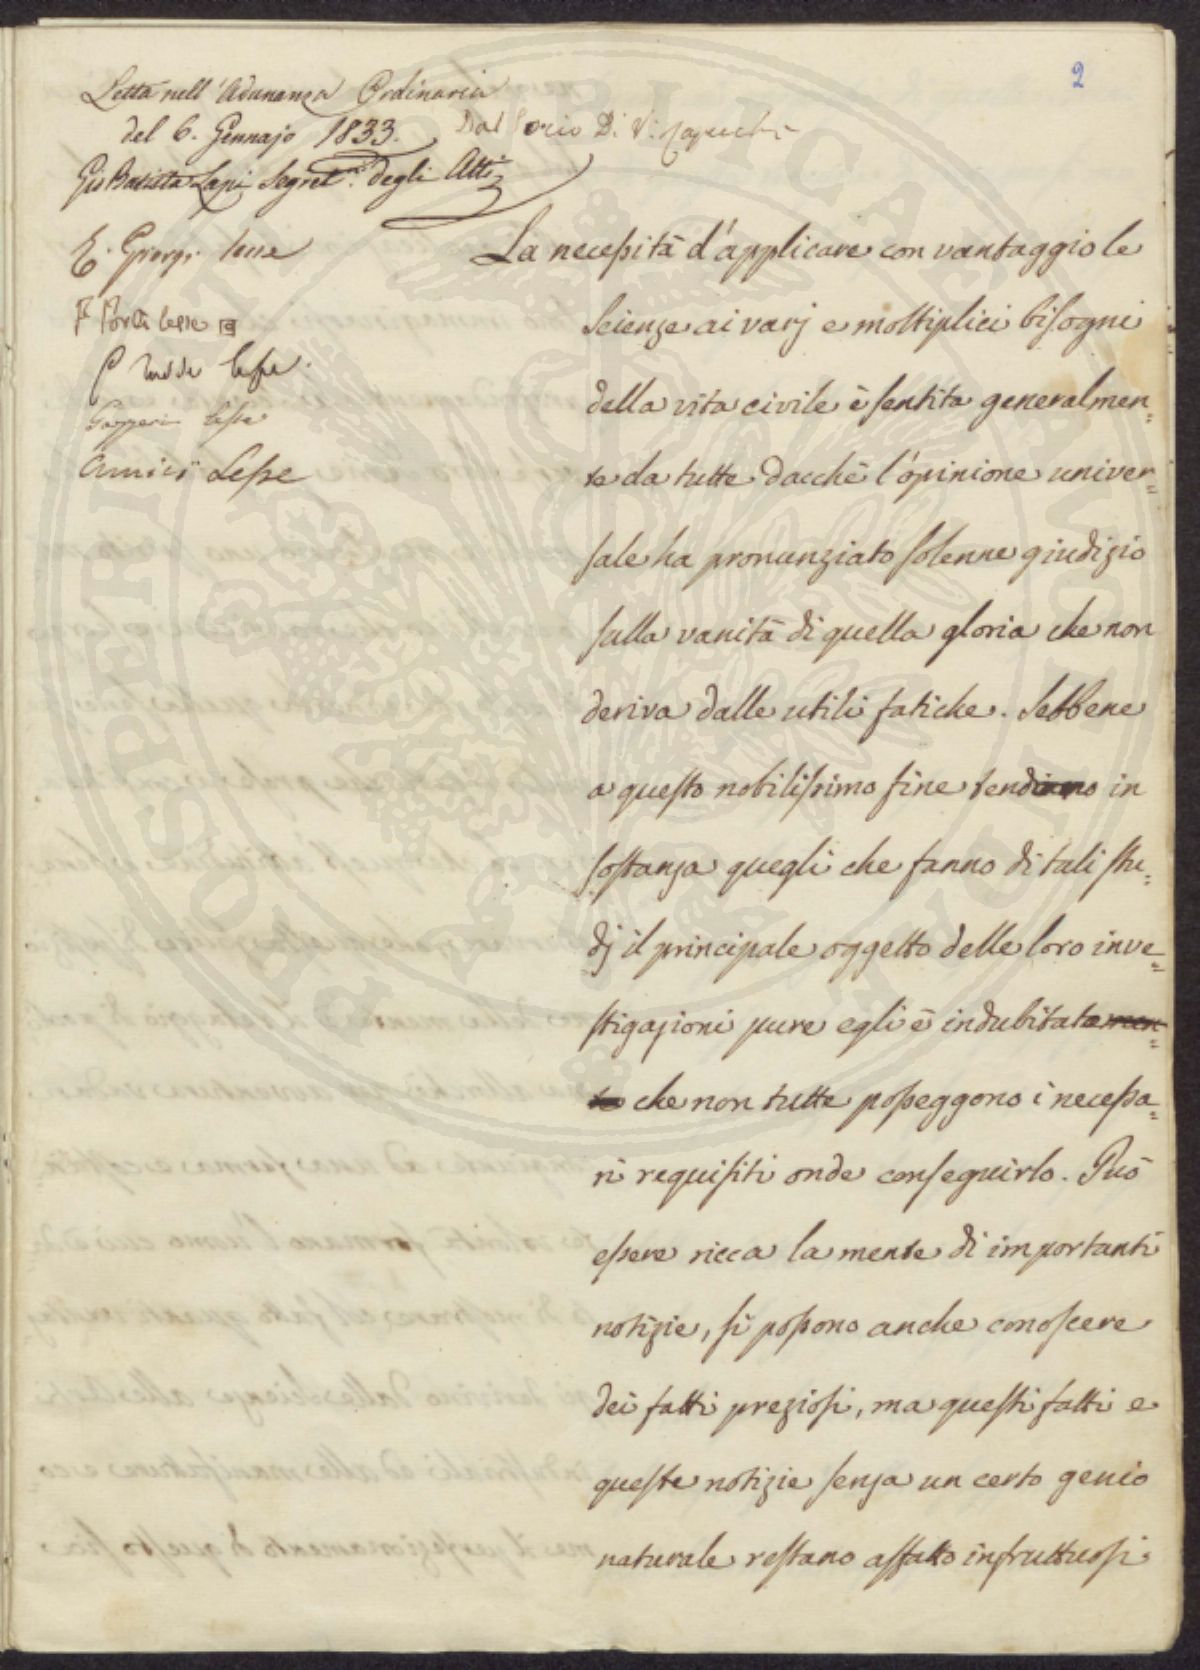 2
Letta nell'Adunanza Ordinaria
del 6. Gennajo 1833. Dal Socio D.
Gio Batista Lapi Segret.º degli Atti
E. Giorgi lesse
Porta lesse
lesse.
Gazzeri lesse
Amici Lesse
La necessità d'applicare con vantaggio le
scienze ai varj e moltiplici bisogni
della vita civile è sentita generalmen=
te da tutte dacchè l'opinione univer=
sale ha pronunziato solenne giudizio
sulla vanità di quella gloria che non
deriva dalle utili fatiche. Sebbene
a questo nobilissimo fine tendano in
sostanza quegli che fanno di tali stu=
dj il principale oggetto delle loro inve=
stigazioni pure egli è indubitatamen=
te che non tutte posseggono i necessa=
ri requisiti onde conseguirlo. Può
essere ricca la mente di importanti
notizie, si possono anche conoscere
dei fatti preziosi, ma questi fatti e
queste notizie senza un certo genio
naturale restano affatto infruttuosi
PROSPERITATI PUBLICAE AUGENDAE